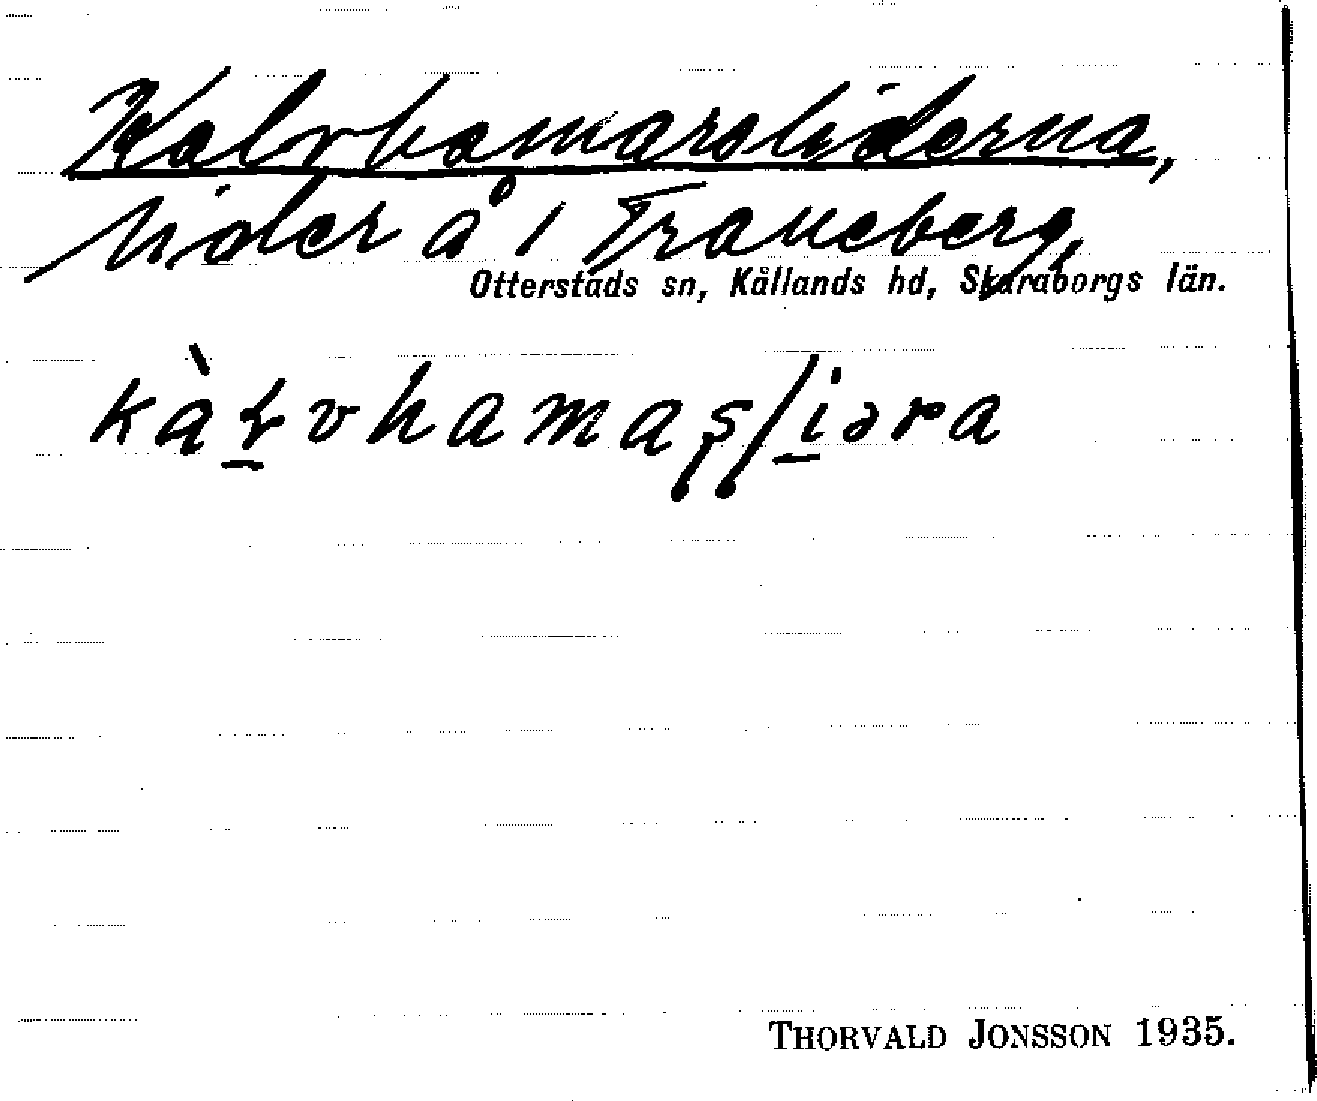 Kalvhamarsliderna,
lider å 1 Traneberg,
Otterstads sn, Kållands hd, Skaraborgs län.
kàɽvhamaʂliəra
THORVALD JONSSON 1935.